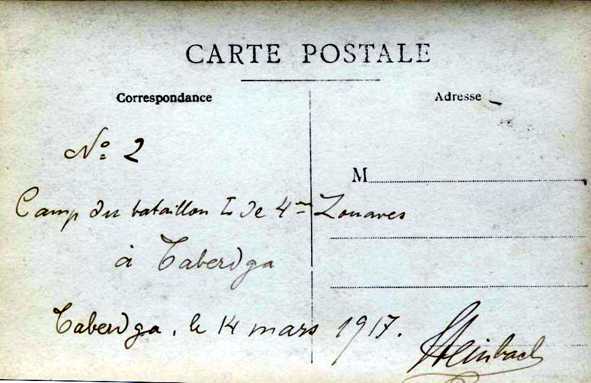 CARTE POSTALE
Correspondance
Adresse
M
Nº 2
Camp du bataillon L de 4me Zouaves
à Taberdga
Taberdga, le 14 mars 1917.
Steinbach